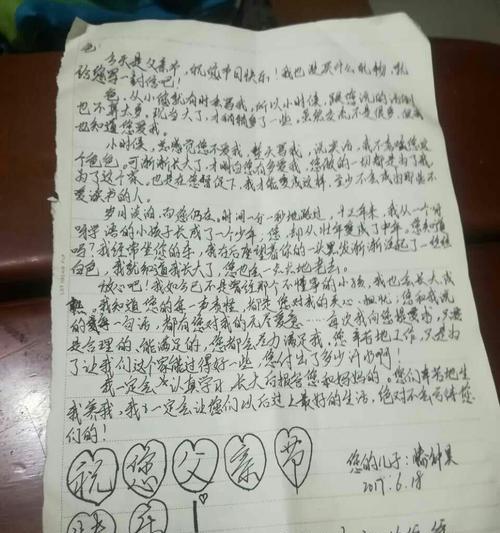 爸：
今天是父亲节，祝您节日快乐！我也没买什么礼物，就
给您写一封信吧！
爸，从小您就有时会骂我，所以小时侯，跟您说的话倒
也不算太多。现当大了，才稍稍多了一些。虽然交流不是很多，但我
也知道您爱我。
小时侯，总感觉您不爱我，整天骂我，说实话，我不喜欢您这
个爸爸。可渐渐长大了，才明白您有多爱我，您做的一切都是为了我
为了这个家。也是在您督促下，我才能变成这样，至少不会成为那些不
爱读书的人。
岁月淡泊，而您仍在。时间一分一秒地跑过，十三年来，我从一个呀
呀学语的小孩子长成了一个少年，您，却从壮年变成了中年，您知道
吗？我经常坐您的车，我在后座望着你的一头黑发渐渐泛起了一丝丝
白色，我就知道我长大了，您也会一天天地老去。
放心吧！我如今已不是曾经那个不懂事的小孩，我也会长大成
熟。我知道，您的每一声责怪，都是您对我的关心、担忧，您和我说
的每一句话，都有您对我的无尽爱意……每次我向您提要求，只要
是合理的，能满足的，您都会尽力满足我，您辛苦地工作，只是为
了让我们这个家能过得好一些，您付出了多少汗水啊！
我一定会认真学习，长大后报答您和妈妈的。您们辛苦地生
我养我，我一定会让您们以后过上最好的生活，绝对不会亏待您
们的！
祝您父亲节
快乐
您的儿子：
2017.6.18